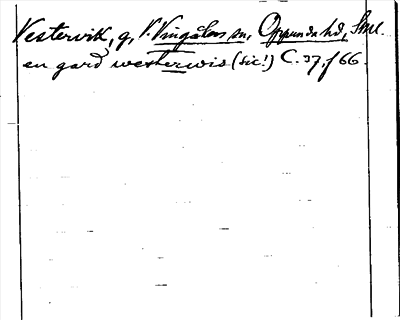 Vestervik, g, V. Vingåkers sn, Oppunda hd, Söml.
en gard westerwis (sic!) C. 37, f 66.